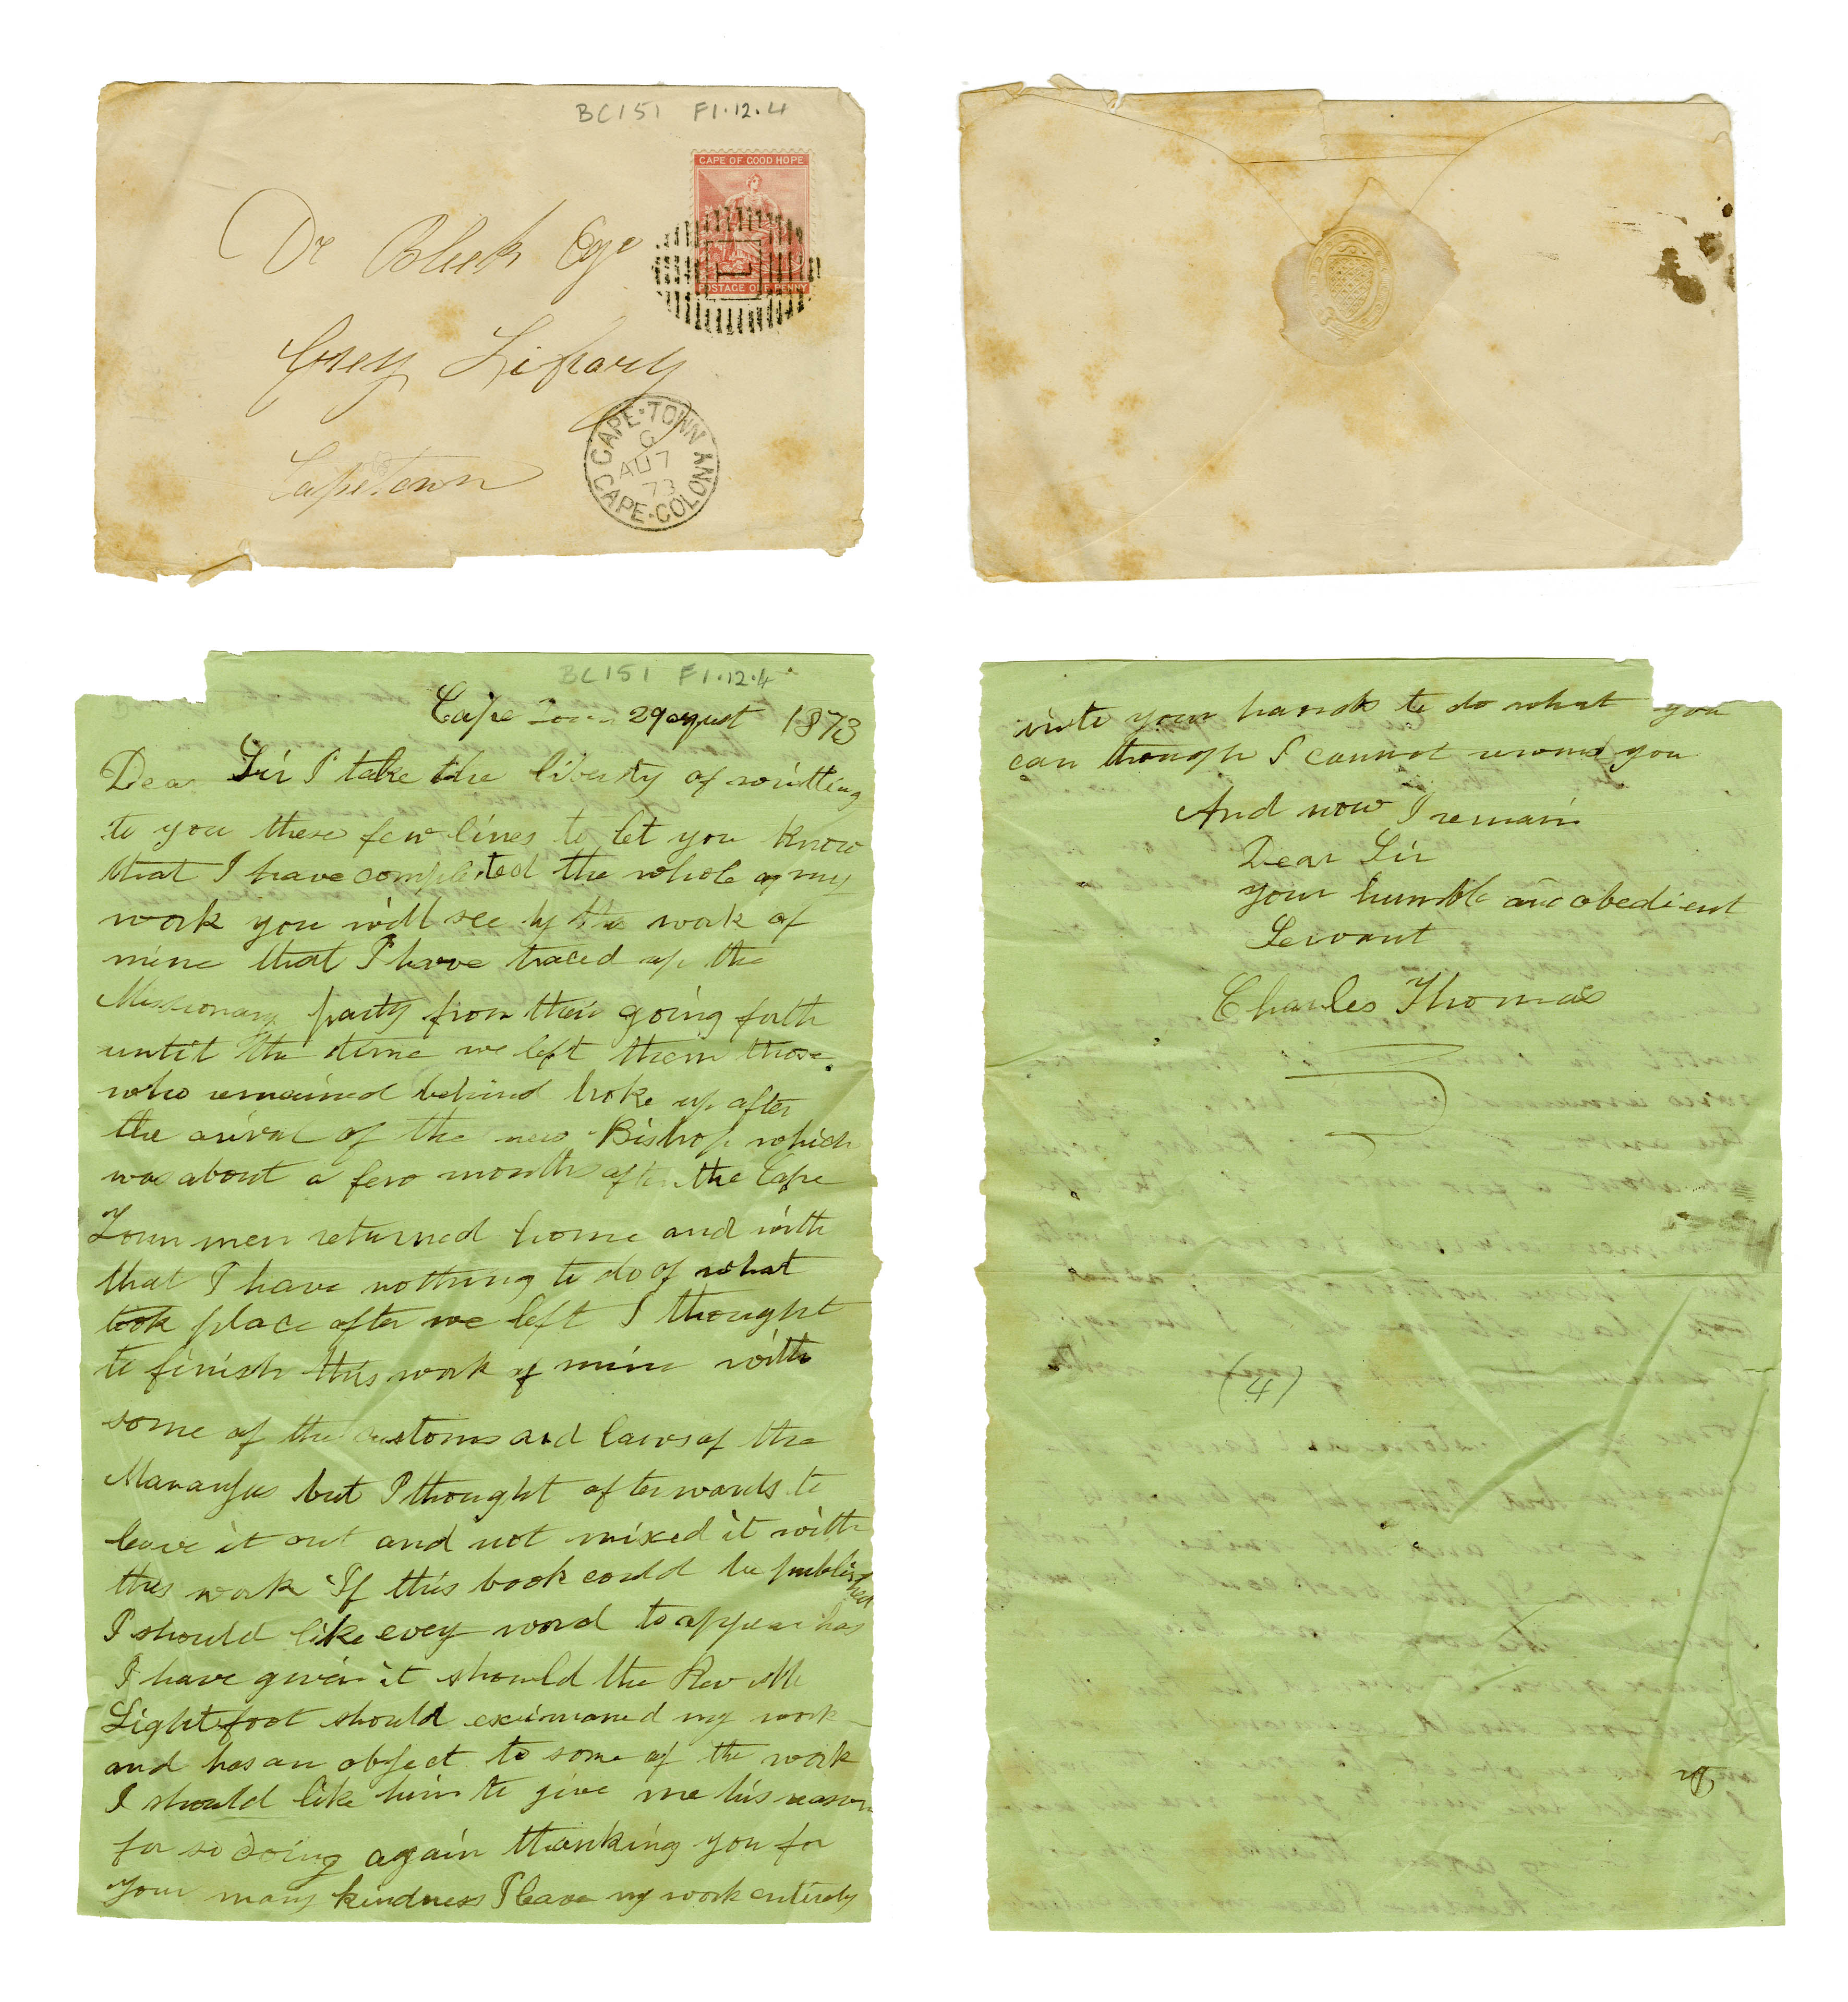 BC151 F1.12.4
CAPE OF GOOD HOPE
POSTAGE ONE PENNY
1
Dr Bleek Esqe
Grey Library
Capetown
CAPE-TOWN CAPE-COLONY
G
AU 7
73
BC151 F1.12.4
Cape Town 29 august 1873
Dear Sir I take the liberty of writting
to you these few lines to let you know
that I have completed the whole of my
work you will see by the work of
mine that I have traced up the
Missionary party from their going forth
until the time we left them those
who remained behind broke up after
the arival of the new Bishop which
was about a few months after the Cape
Town men returned home and with
that I have nothing to do of what
took place after we left I thought
to finish this work of mine with
some of the customs and laws of the
but I thought afterwards to
leave it out and not mixed it with
this work If this book could be published
I should like evey word to appear has
I have given it should the Rev Mr
Lightfoot should your my work
and has an object to some of the work
I should like him to give me his reason
for so doing again thanking you for
Your many kindness I leave my work entirely
into your hands to do what you
can though I cannot reward you
And now I remain
Dear Sir
your humble and obedient
Servant
Charles Thomas
(4)
Dr